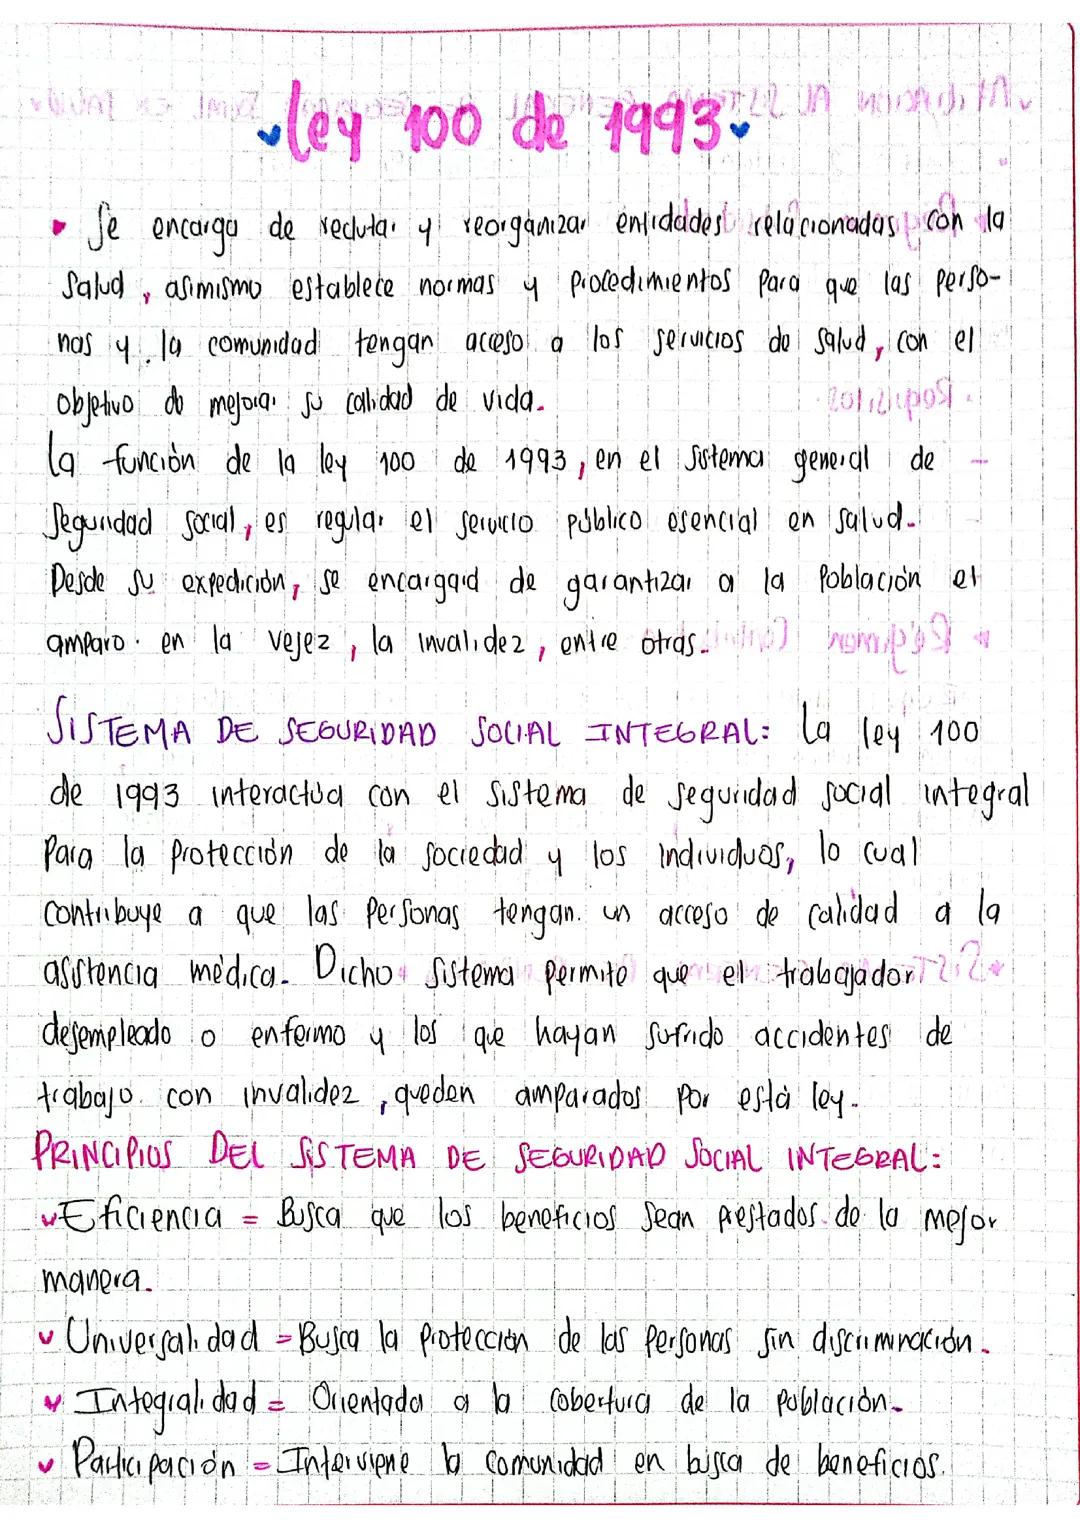 Ley 100 de 1993
Se encarga de reclutar y reorganizar entidades relacionadas con la
Salud, asimismo establece normas y procedimientos para que las perso-
nas y la comunidad tengan acceso a los servicios de salud, con el
objetivo de mejorar su calidad de vida.
La función de la ley 100 de 1993, en el sistema general de
Seguridad social, es regular el servicio público esencial en salud.
Desde su expedición, se encargara de garantizar a la población el
amparo en la vejez, la invalidez, entre otras.
SISTEMA DE SEGURIDAD SOCIAL INTEGRAL: La ley 100
de 1993 interactúa con el sistema de seguridad social integral
para la protección de la sociedad y los individuos, lo cual
contribuye a que las personas tengan un acceso de calidad a la
asistencia médica. Dicho sistema permite que el trabajador
desempleado o enfermo y los que hayan sufrido accidentes de
trabajo con invalidez, queden amparados por está ley.
PRINCIPIOS DEL SISTEMA DE SEGURIDAD SOCIAL INTEGRAL:
Eficiencia = Busca que los beneficios sean prestados de la mejor
manera.
Universalidad = Busca la protección de las personas sin discriminación.
Integralidad = Orientada a la cobertura de la población.
Participación = Interviene la comunidad en busca de beneficios.